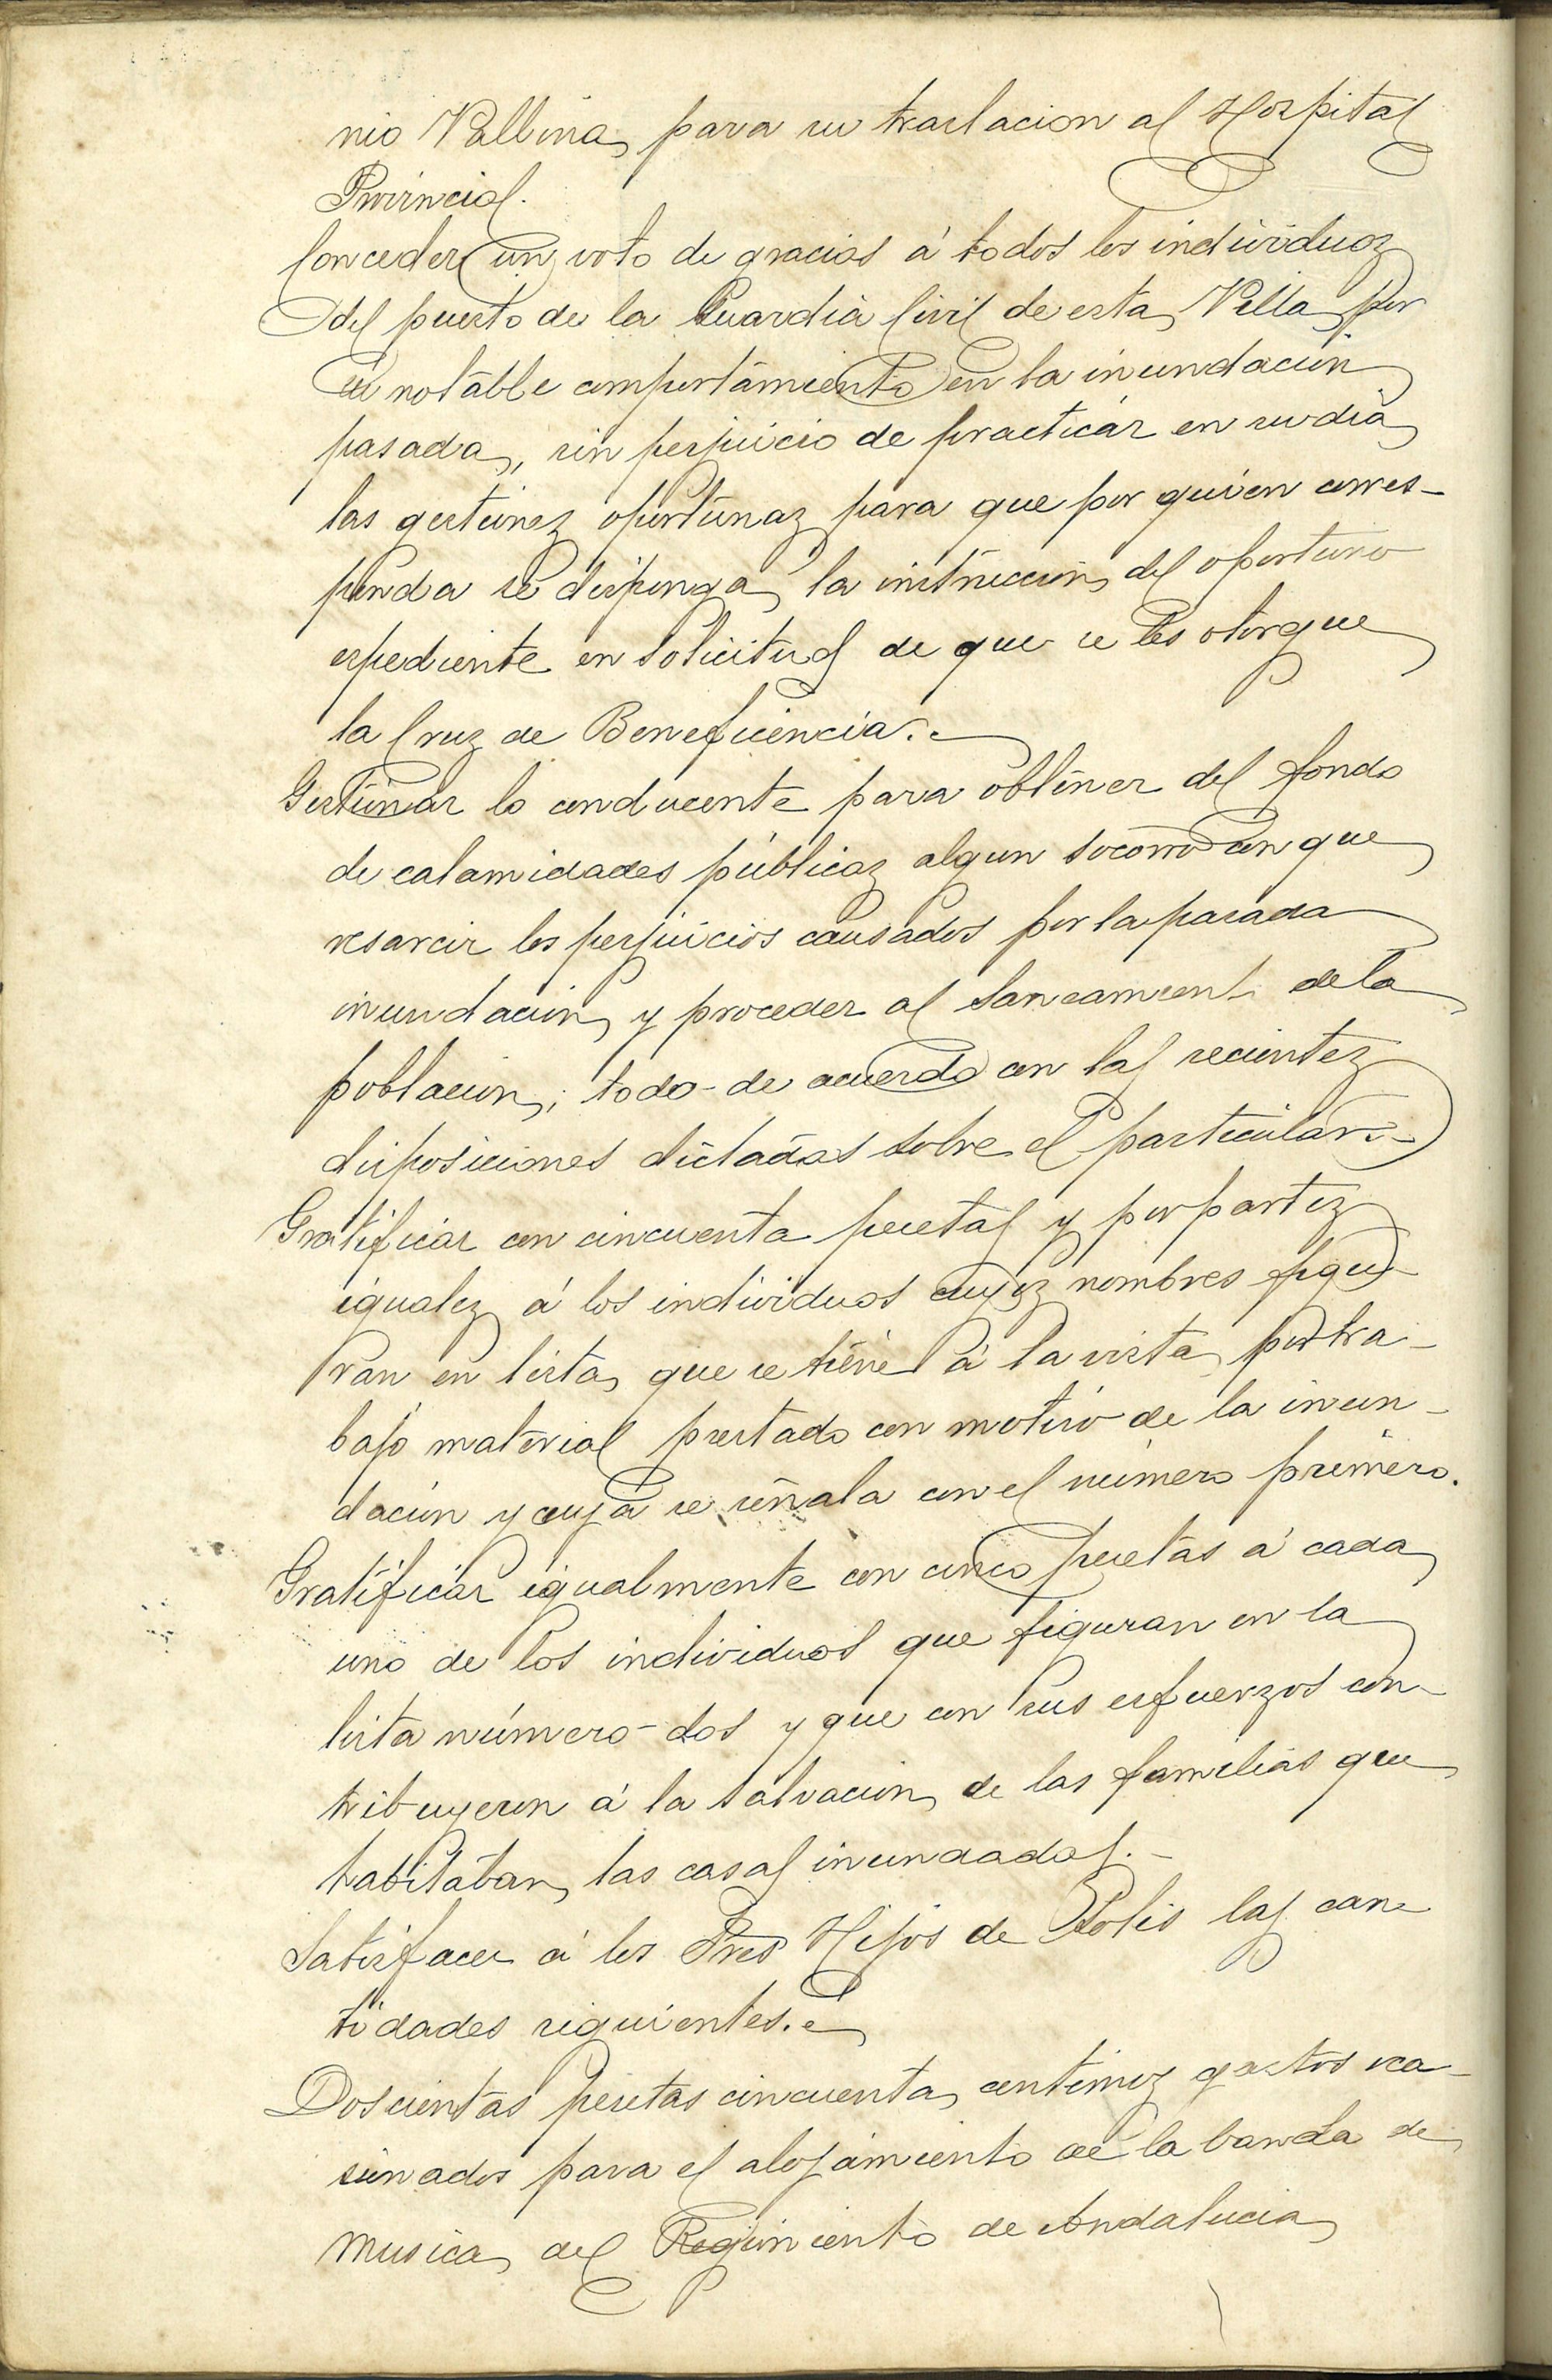 nio Vallina para su traslacion al Hospital
Provincial.
Conceder un voto de gracias á todos los individuos
del puesto de la Guardia Civil de esta Villa por
su notable comportamiento en la inundacion
pasada, sin perjuicio de practicar en su dia
las gestiones oportunas para que por quien corres-
ponda se disponga la instruccion del oportuno
espediente en solicitud de que se les otorgue
la Cruz de Beneficencia.
Gestionar lo conducente para obtener del fondo
de calamidades públicas algun socorro con que
resarcir los perjuicios causados por la pasada
inundacion y proceder al saneamiento de la
poblacion; todo de acuerdo con las recientes
disposiciones dictadas sobre el particular.-
Gratificar con cincuenta pesetas y por partes
iguales á los individuos cuyos nombres figu-
ran en lista que se tiene á la vista por tra-
bajo material prestado con motivo de la inun-
dacion y cuya se señala con el número primero.
Gratificar igualmente con cinco pesetas á cada
uno de los individuos que figuran en la
lista número dos y que con sus esfuerzos con-
tribuyeron á la salvacion de las familias que
habitaban las casas inundadas.-
Satisfacer á los Sres Hijos de Solis las can-
tidades siguientes.
Doscientas pesetas cincuenta centimos gastos oca-
sionados para el alojamiento de la banda de
musica del Regimiento de Andalucia